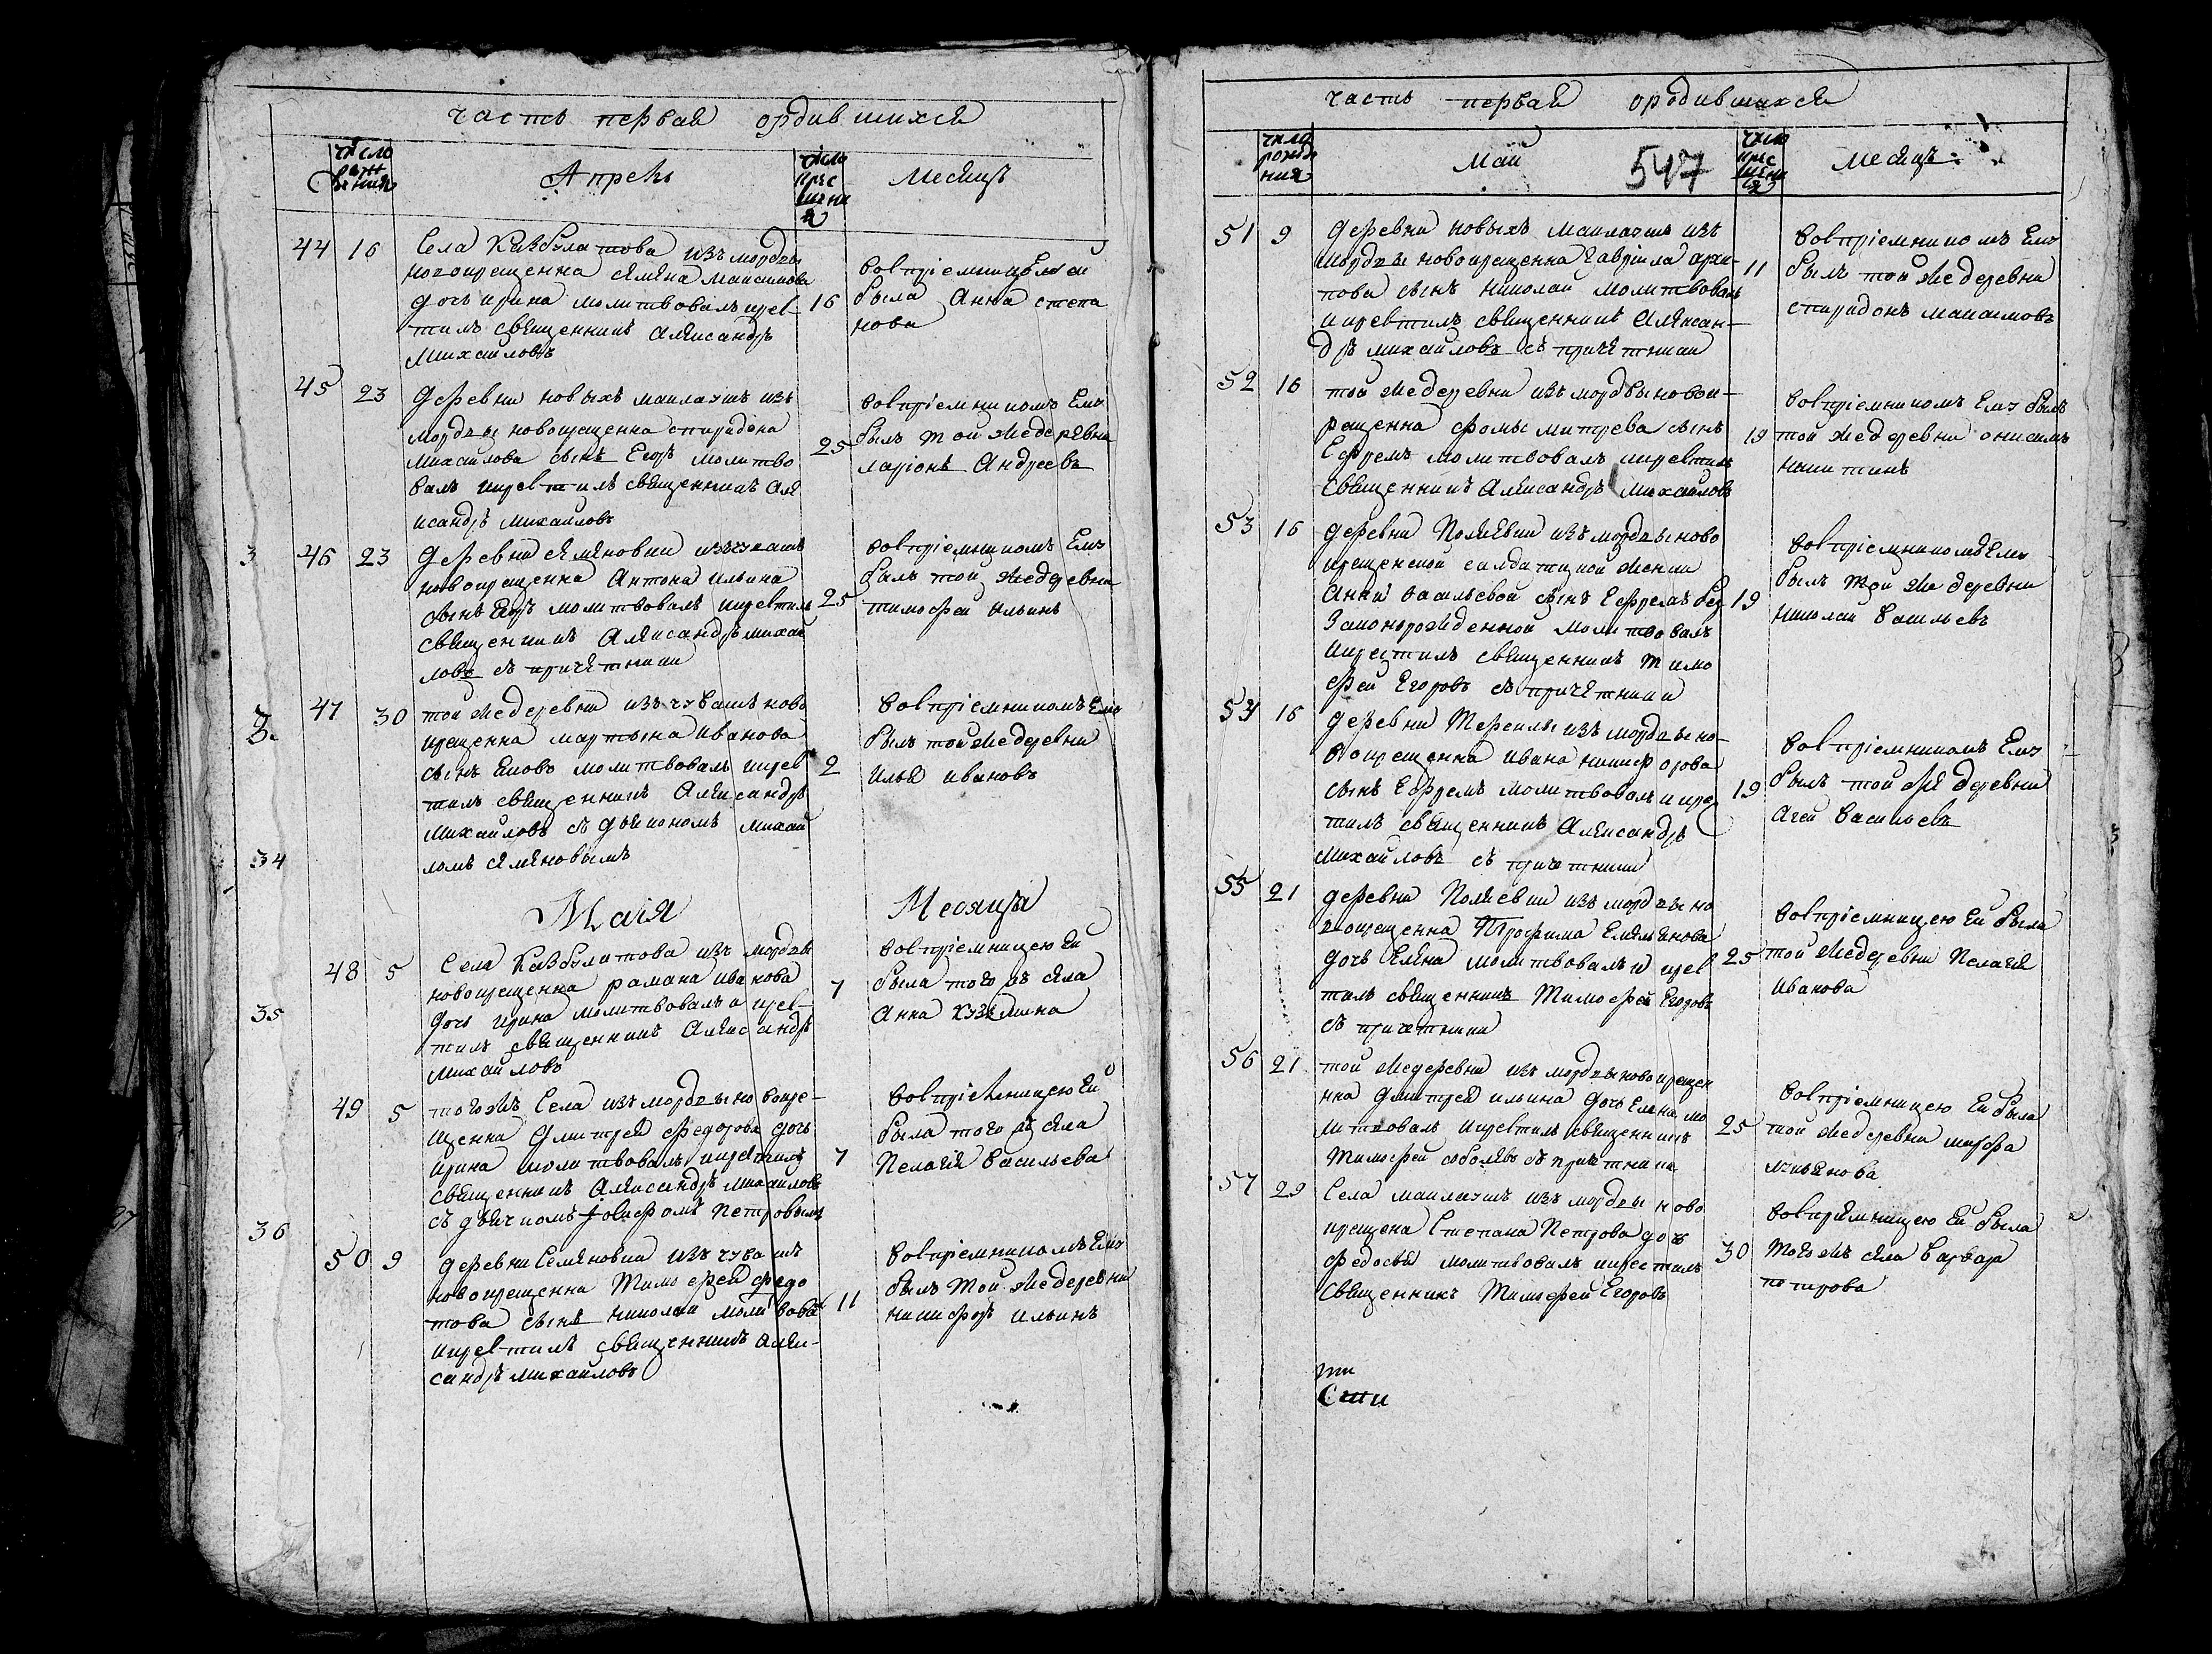 часть первая ордившихся
число рожения
Апрель
число крещения
месяцъ
44 16 Села Кивбулатова изъ мордвы
новокрещенна Семена Максимова
дочь ирина молитвовалъ икрес-
тилъ священникъ Александръ
Михаиловъ
16
воспріемницею ей
была Анна степа
нова
45 23 деревни новыхъ маклаушъ изъ
мордвы новокрещенна спиридона
михаилова сынъ Егоръ молитво
валъ икрестилъ священникъ але
ксандръ михаиловъ
25
воспріемникомъ Ему
былъ той же деревни
ларіонъ Андреевъ
3 46 23 деревни семеновки изчувашъ
новокрещенна Антона ильина
сынъ Егоръ молитвовалъ икрестилъ
священникъ Александръ михаи
ловъ съ причетники
25
воспріемникомъ Ему
былъ той же деревни
тимофеи ильинъ
47 30 той же деревни изъ чувашъ ново
крещенна мартына иванова
сынъ яковъ молитвовалъ икрес
тилъ священникъ Александръ
михаиловъ съ дьякономъ михаи
ломъ семеновымъ
2
воспріемникомъ Ему
былъ той же деревни
илья ивановъ
34
Маія Месяца
48 5 Села Кивбулатова изъ мордвы
новокрещенна рамана иванова
дочь ирина молитвовалъ и крес-
тилъ священникъ Александръ
михаиловъ
7
воспріемницею Ей
была того жъ села
Анна кузмина
35
49 5 тогожъ Села изъ мордвы новокре-
щенна дмитрея федорова дочь
ирина молитвовалъ икрестилъ
священникъ Александръ михаиловъ
съ дьячкомъ Іосифомъ Петровымъ
7
воспріемницею Ей
была того жъ села
Пелагея васильева
36
50 9 деревни Семеновки изъ чувашъ
новокрещенна Тимофея федо
това сынъ николаи молитвовалъ
икрестилъ священникъ алек-
сандръ михаиловъ
11
воспріемникомъ Ему
былъ той же деревни
никифоръ ильинъ
часть первая ородившихся
число рождения
Май
547
число крещения
месяцъ
51 9 деревни новыхъ маклаушъ изъ
мордвы новокрещенна гавріила архи-
пова сынъ николаи молитвовалъ
икрестилъ священникъ Алексан-
дръ михаиловъ съ причетники
11
воспріемникомъ Ему
былъ той же деревни
спиридонъ максимовъ
52 16 той же деревни изъ мордвы новок-
рещенна фомы митрева сынъ
Ефремъ молитвовалъ икрестилъ
священникъ Александръ михаиловъ
19
воспріемникомъ Ему былъ
той же деревни онисимъ
никитинъ
53 16 деревни Полаевки изъ мордвы ново
крещенской салдатцкой женки
Анны васильевой сынъ Ефремъ без
законорожденной молитвовалъ
икрестилъ священникъ тимо
феи Егоровъ съ причетники
19
воспріемникомъ Ему
былъ той же деревни
николаи васильевъ
54 16 деревни изъ мордвы но-
вокрещенна ивана никифорова
сынъ Ефремъ молитвовалъ и крес
тилъ священникъ Александръ
михаиловъ съ причетники
19
воспріемникомъ Ему
былъ той же деревни
Агей васильевъ
55 21 деревни Полаевки изъ мордвы но
вокрещенна Трофима Емельянова
дочь Елена молитвовалъ и крес
тилъ священникъ Тимофеи Егоровъ
съ причетники
25
воспріемницею Ей была
той же деревни Пелагея
иванова
56 21 той же деревни изъ мордвы новокрещен
нна дмитрея ильина дочь Елена мо
литвовалъ икрестилъ священникъ
Тимофеи соболевъ съ причетники
25
воспріемницею Ей была
той же деревни марфа
57 29 Села маклаушъ изъ мордвы ново
крещена Степана Петрова дочь
федосья молитвовалъ икрестилъ
Священникъ Тимофеи Егоровъ
30
воспріемницею Ей была
тогожъ села варвара
петрова